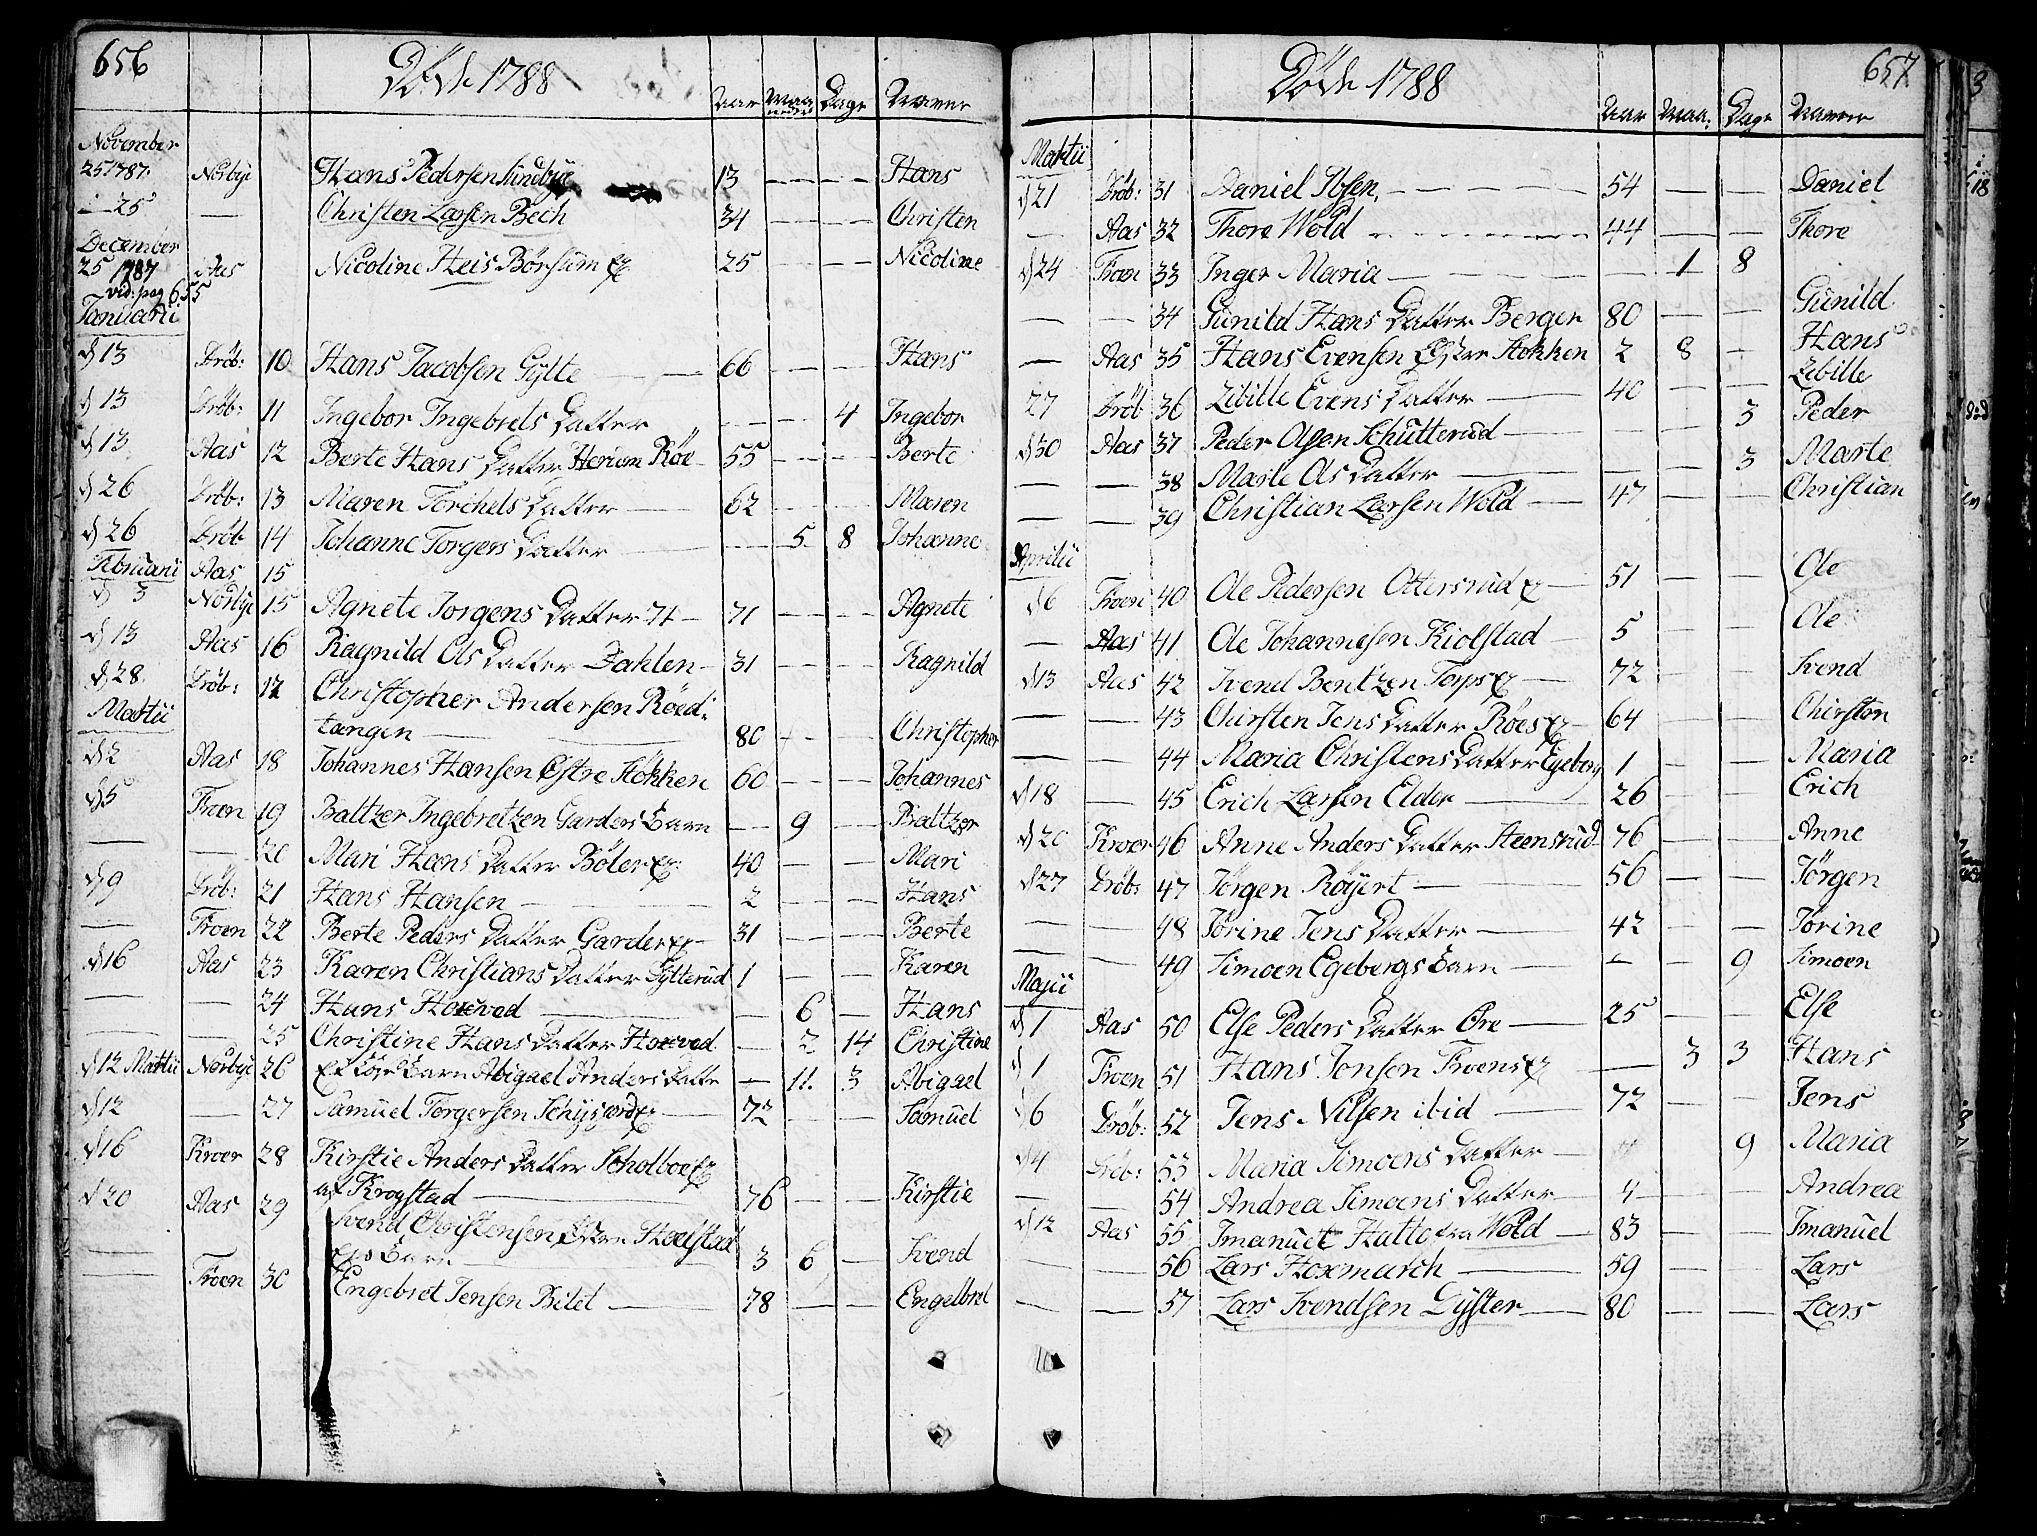 656
Döde 1788
Aar Maaneder Dage Navne
November
25 1787. Norbye Hans Pedersen Sundbye 13 — — Hans
— 25 — Christen Larsen Bech 34 — — Christen
December
25 1787 Aas Nicoline Heis Börsum 25 — — Nicoline
vid: pag 655
Januarii
d 13 Dröb: 10 Hans Jacobsen Gylte — 66 — — Hans
d 13 Dröb: 11 Ingebor Ingebrets Datter — — 4 Ingebor
d 13 Aas 12 Berte Hans Datter Röe 55 — — Berte
d 26 Dröb: 13 Maren Torchels Datter — 62 — — Maren
d 26 Dröb 14 Johanne Torgers Datter — — 5 8 Johanne
Februarii Aas 15
d 3 Norbye 15 Agnete Jorgens Datter 71 — 71 — — Agnete
d 13 Aas 16 Ragnild Ols Datter Dahlen — 31 — — Ragnild
d 28. Dröb: 17 Christopher Andersen Röed:
Martii tangen — 80 — — Christopher
d 2 Aas 18 Johannes Hansen Östre Stökken 60 — — Johannes
d 5 Froen 19 Baltzer Ingebretzen Garders Barn — 9 — Baltzer
— — 20 Mari Hans Datter Böler 40 — — Mari
d 9 Dröb: 21 Hans Hansen — 2 — — Hans
— Froen 22 Berte Peders Datter Garder 31 — — Berte
d 16 Aas 23 Karen Christians Datter Sytterud 1 — — Karen
— — 24 Hans Horved — — 6 — Hans
— — 25 Christine Hans Datter Horved — 2 14 Christine
d 12 Martii Norbye 26 Barn Abigael Anders Datter — 11. 3 Abigael
d 12 — 27 Samuel Torgersen 72 — — Samuel
d 16 Kroer 28 Kirstie Anders Datter
af Krogstad — 76 — — Kirstie
d 20 Aas 29 Svend Christensen Östen Skoelstad
Barn — 3 6 — Svend
— Froen 30 Engebret Jensen Bilet — 78 — — Engelbret
657
Döde 1788
Aar Maa: Dage Navne
Martii
d 21 Dröb: 31 Daniel Ibsen, — 54 — — Daniel
— Aas 32 Thore Wold — 44 — — Thore
d 24 Froen 33 Inger Maria — — 1 8
— — 34 Gunild Hans Datter Berger 80 — — Gunild
— Aas 35 Hans Evensen Östre Stokken 2 8 — Hans
27 Dröb 36 Zibille Evens Datter — 40 — — Zibille
d 30 Aas 37 Peder Olsen Schutterud — — — 3 Peder
— — 38 Marte Ols Datter — — — 3 Marte
— — 39 Christian Larsen Wold — 47 — — Christian
Aprilii
d 6 Froen 40 Ole Pedersen Ottersrud — 51 — — Ole
— Aas 41 Ole Johannesen Kiolstad — 5 — — Ole
d 13 Aas 42 Svend Bentzen Torps — 72 — — Svend
— — 43 Chirsten Jens Datter Röes — 64 — — Chirsten
— — 44 Maria Christens Datter Egeberg 1 — — Maria
d 18 — 45 Erich Larsen Elder — 26 — — Erich
d 20 Kroer 46 Anne Anders Datter Steensrud — 76 — — Anne
d 27 Dröb: 47 Jörgen Röyert — 56 — — Jörgen
— — 48 Jörine Jens Datter — 42 — — Jörine
— — 49 Simoen Egebergs Barn — — — 9 Simoen
Majii
d 1 Aas 50 Else Peders Datter Öre — 25 — — Else
d 1 Froen 51 Hans Jonsen Froens — 3 3 Hans
d 6 Dröb: 52 Jens Nilsen ibid — 72 — — Jens
d 4 Dröb: 53 Maria Simoens Datter — 9 Maria
— — 54 Andrea Simoens Datter — 4 — — Andrea
d 12 Aas 55 Imanuel Hatto fra Wold — 83 — — Imanuel
— — 56 Lars Horemarch — 59 — — Lars
— — 57 Lars Svendsen Gyster — 80 — — Lars